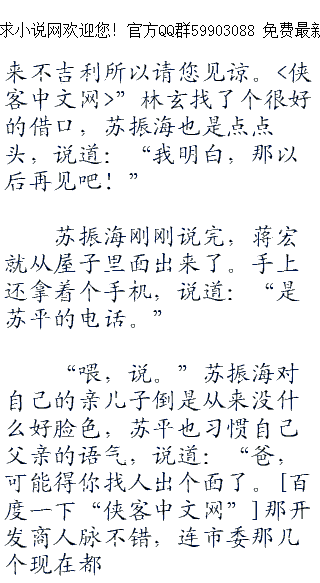 求小说网欢迎您！官方QQ群59903088 免费最新
来不吉利所以请您见谅。<侠
客中文网>”林玄找了个很好
的借口，苏振海也是点点
头，说道：“我明白，那以
后再见吧！”
苏振海刚刚说完，蒋宏
就从屋子里面出来了。手上
还拿着个手机，说道：“是
苏平的电话。”
“喂，说。”苏振海对
自己的亲儿子倒是从来没什
么好脸色，苏平也习惯自己
父亲的语气，说道：“爸，
可能得你找人出个面了。[百
度一下“侠客中文网”]那开
发商人脉不错，连市委那几
个现在都